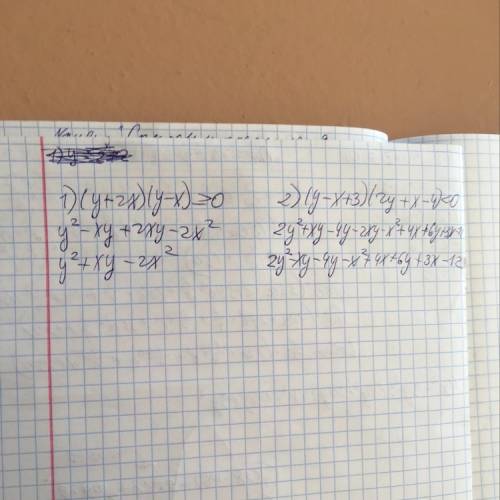 1) (y+2x)(y-x) ≥0
y²-xy+2xy-2x²
y²+xy-2x²
2) (y-x+3)(2y+x-4)<0
2y²+xy-4y-2xy-x²+4x+6y+3x-
2y²-xy-4y-x²+4x+6y+3x-12